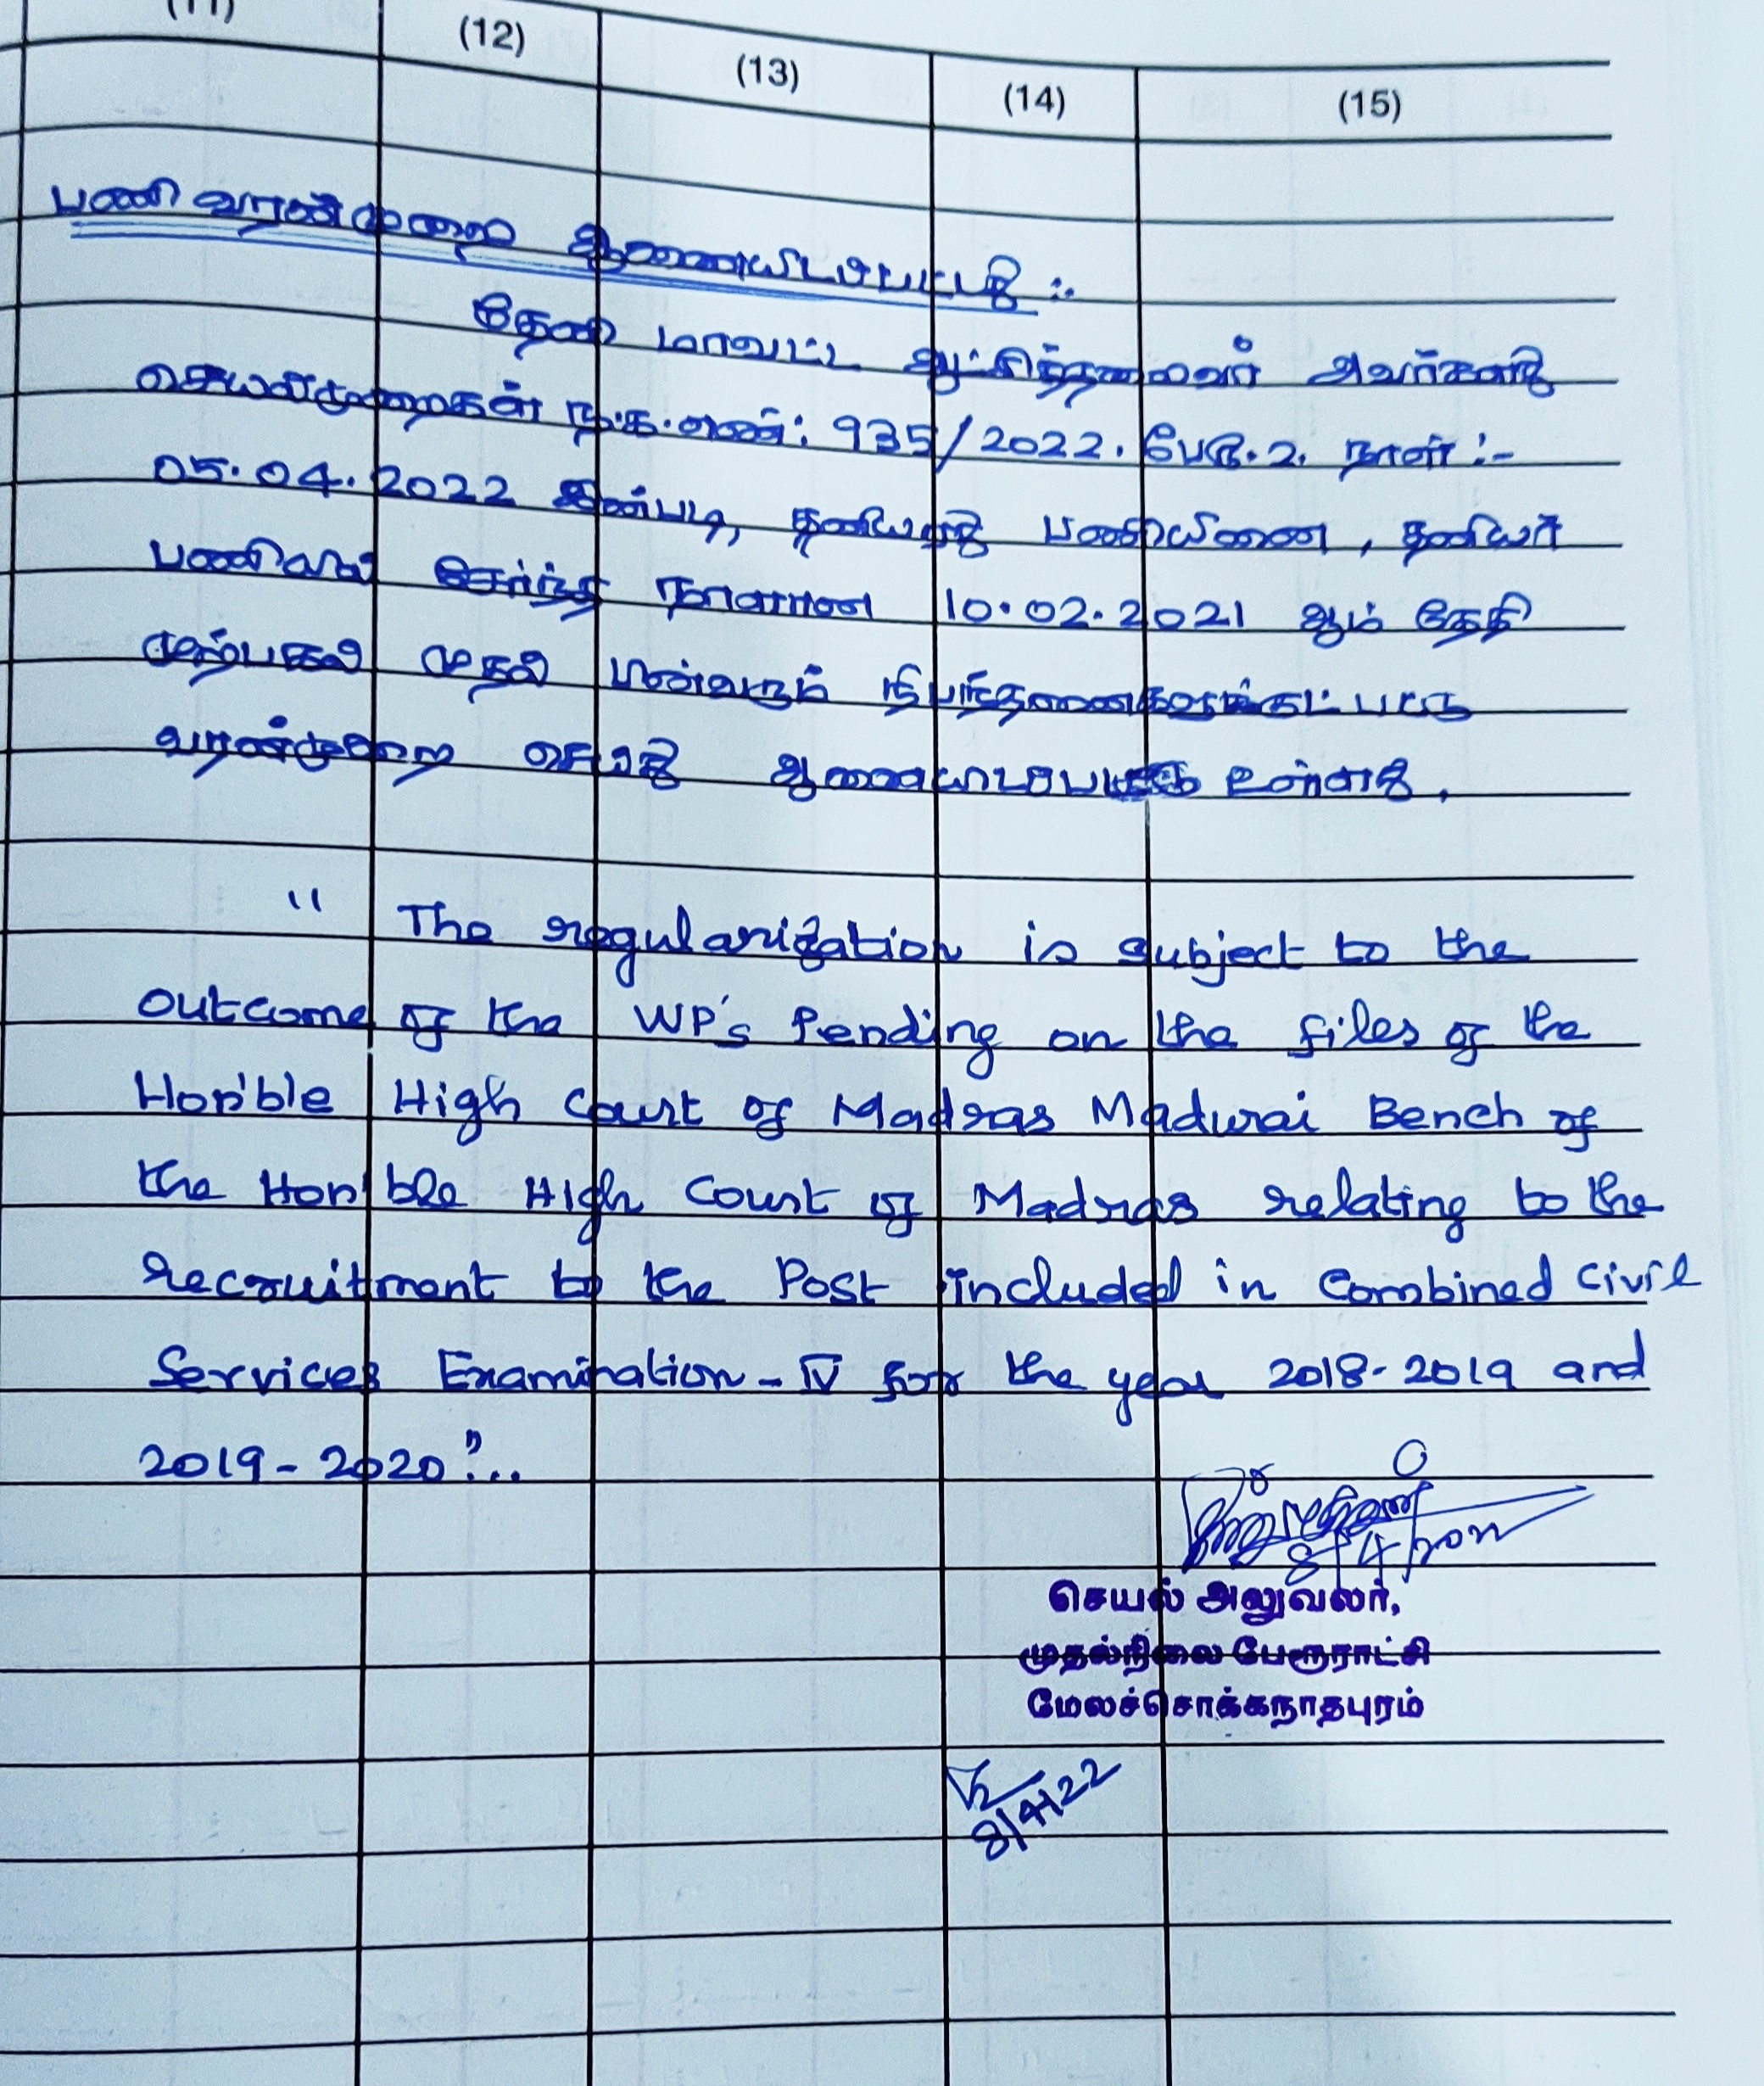 (11) (12) (13) (14) (15)
பணி வரன்முறை ஆணையிடப்பட்டது :.
தேனி மாவட்ட ஆட்சித்தலைவர் அவர்களது
செயல்முறைகள் ந.க.எண்: 935/2022. பேரூ.2. நாள் :-
05.04.2022 இன்படி, தனியரது பணியினை, தனியர்
பணியில் சேர்ந்த நாளான 10.02.2021 ஆம் தேதி
முற்பகல் முதல் பின்வரும் நிபந்தனைக்குட்பட்டு
வரன்முறை செய்து ஆணையிடப்பட்டு உள்ளது.
" The regularization is subject to the
outcome of the WP's Pending on the files of the
Hon'ble High Court of Madras Madurai Bench of
the Hon'ble High Court of Madras relating to the
recruitment to the Post included in Combined Civil
Services Examination - IV for the year 2018-2019 and
2019 - 2020"...
செயல் அலுவலர்,
முதல்நிலை பேரூராட்சி
மேலச்சொக்கநாதபுரம்
8/4/22